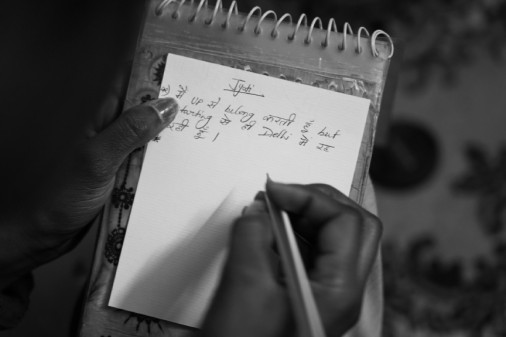 Jyoti
* मैं UP से belong करती हूँ but
starting से ही Delhi में रह
रही हूँ।
*